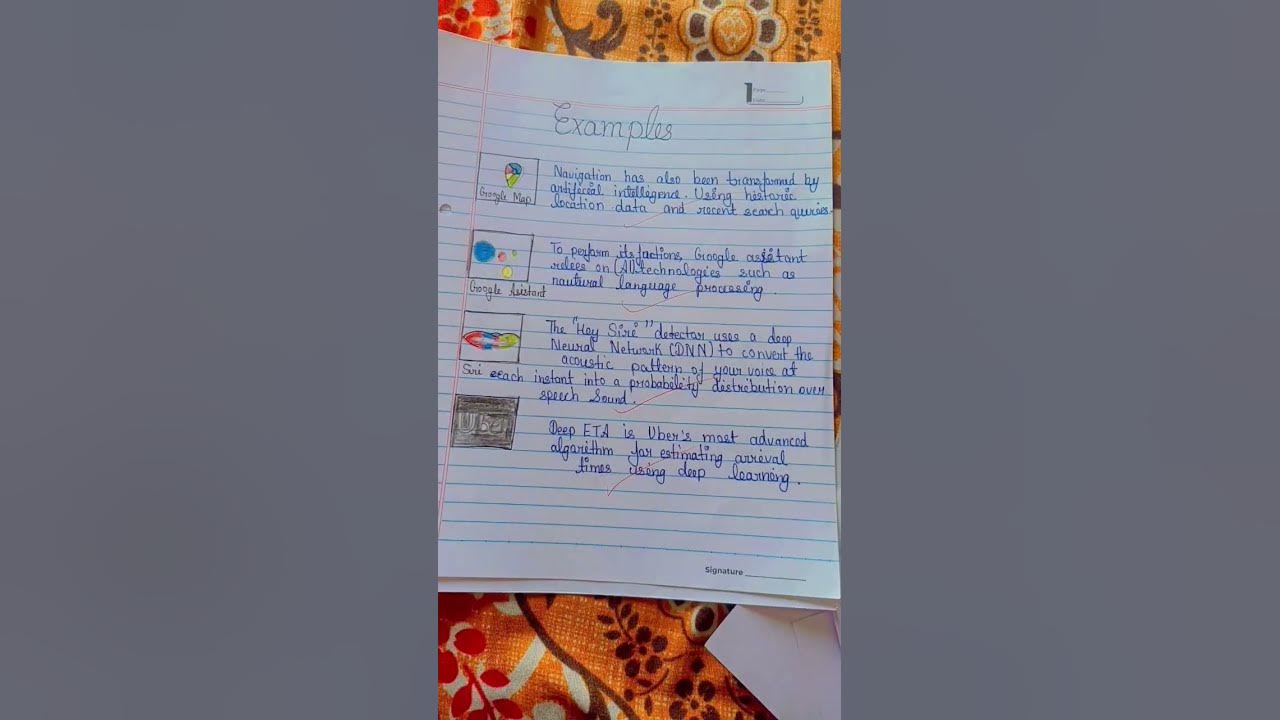 Page:
Date:
Examples
Google Map
Navigation has also been transformed by
artifeceal intellegence. Using hestoric
location data and recent search queries.
Google Asistant
To perform its fuctions, Google assistant
relees on (AI) technologies such as
nautural language processing.
Siri
The "Hey Sire" detector uses a deep
Neural Network (DNN) to convert the
acoustic pattern of your voice at
each instant into a probabeleity distribution over
speech Sound.
Uber
Deep ETA is Uber's most advanced
algorithm for estimating arrival
times using deep learning.
Signature